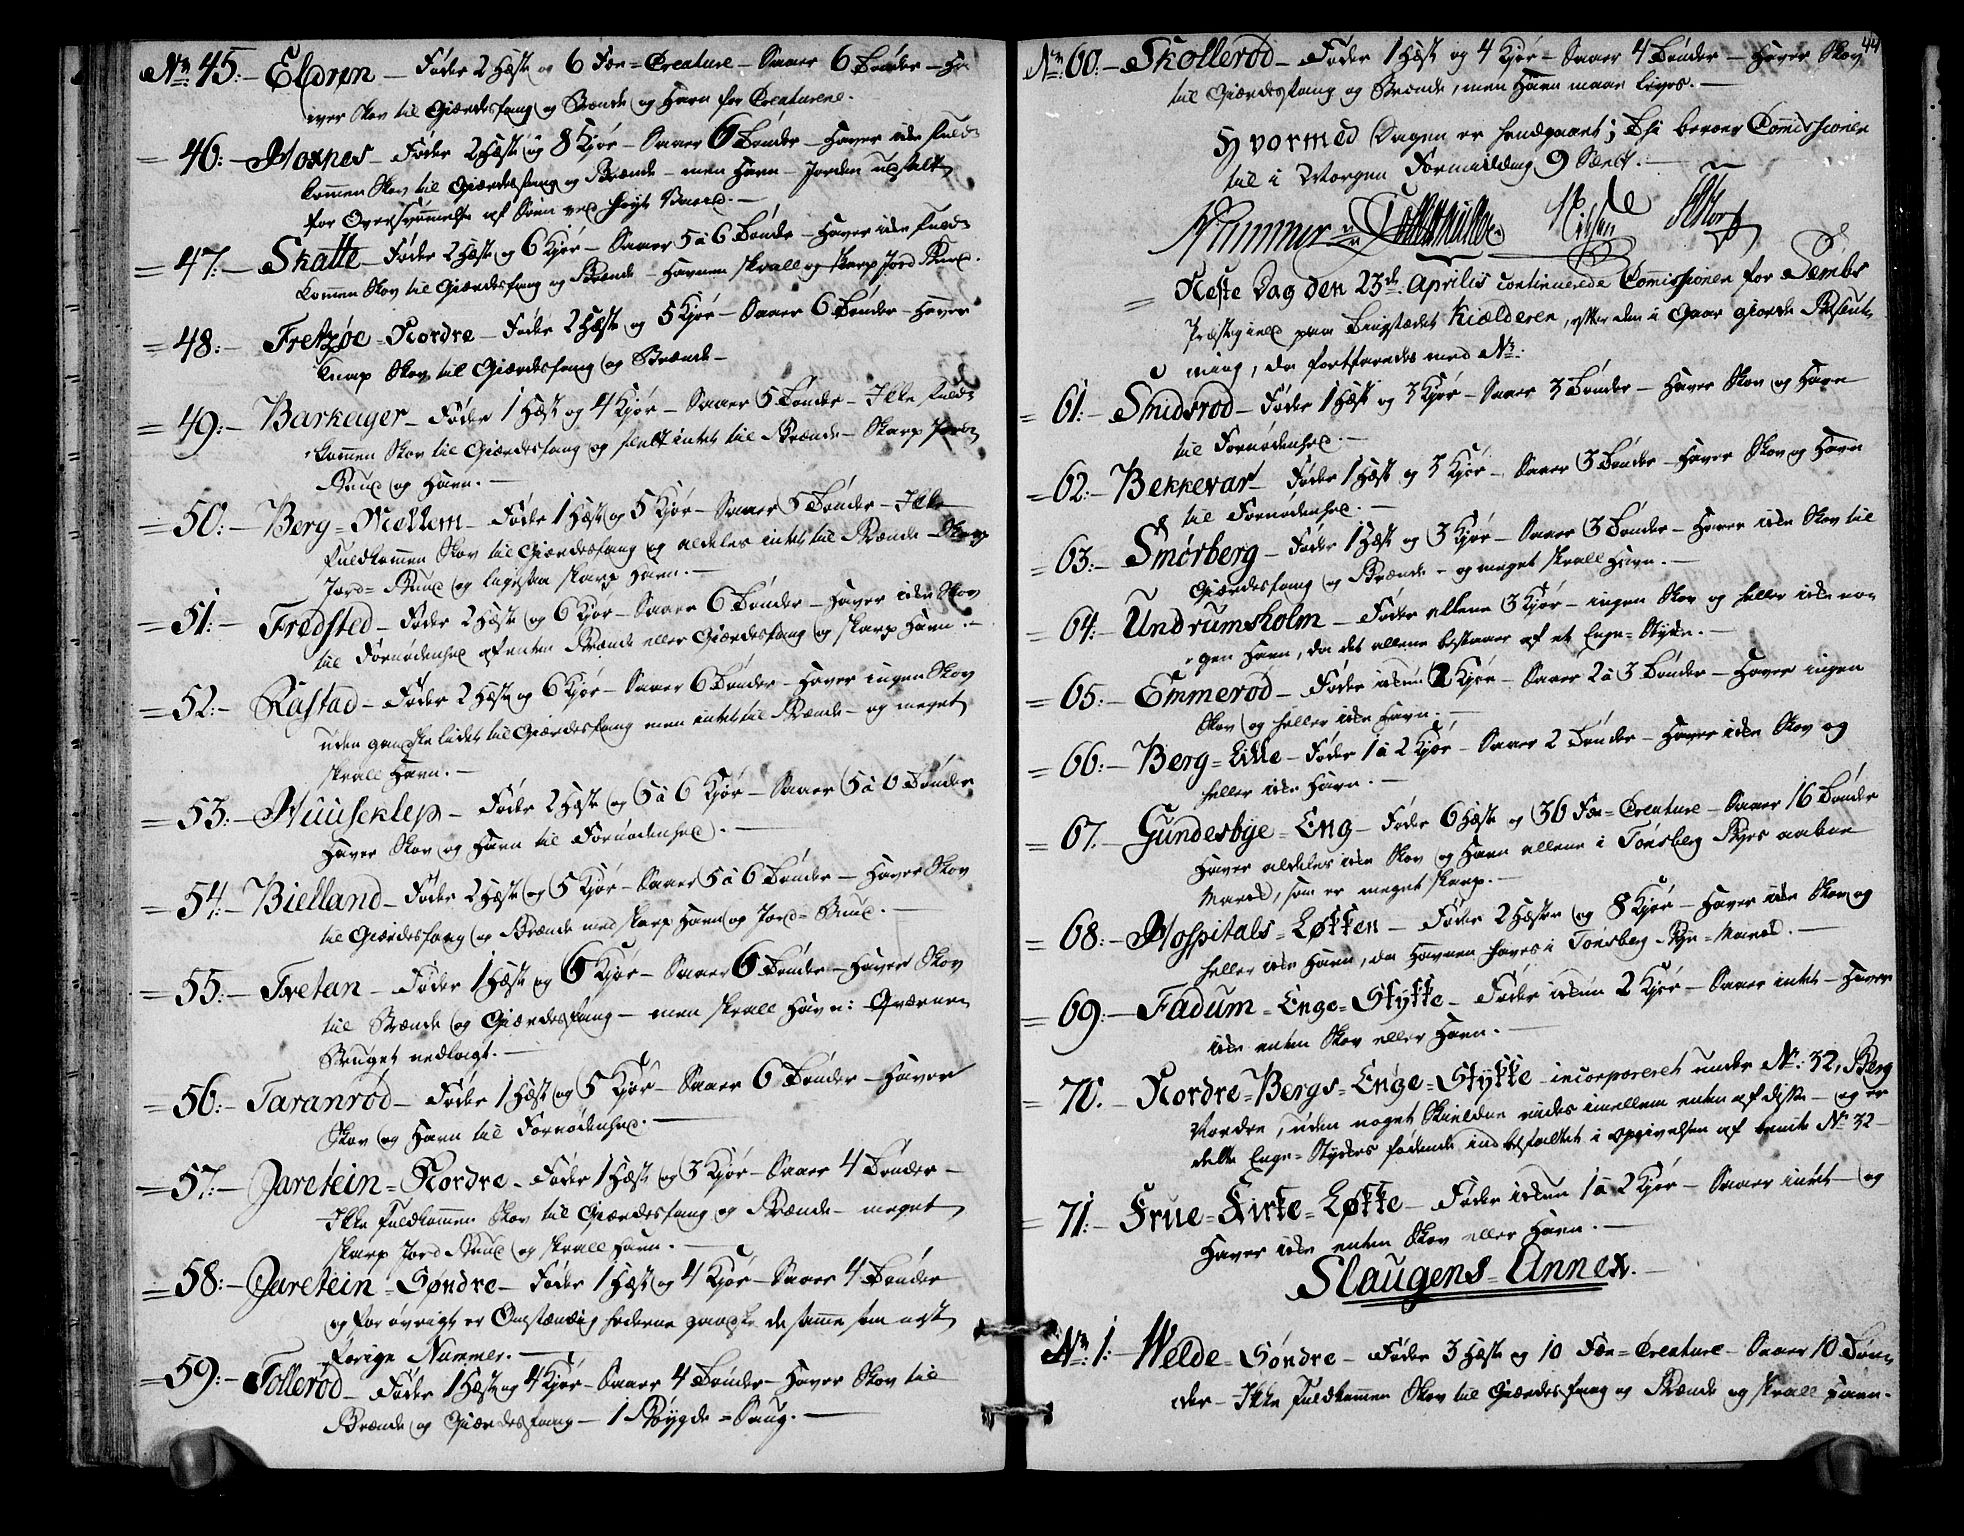 No 45. – Eldren – Føder 2 Hæste og 6 Fæe-Creature – Saaer 6 Tønder – Ha-
iver Skov til Giærdesfang og Brænde og Havn for Creaturene. –
= 46: – Moxnes – Føder 2 Hæste og 8 Kjør – Saaer 6 Tønder – Haver icke fuld-
kommen Skov til Giærdesfang og Brænde – men Havn – Jorden udstædt
for Oversvømmelse af Søen ved høyt Vand. –
= 47: – Skatte – Føder 2 Hæste og 6 Kjør – Saaer 5 a 6 Tønder – Haver icke fuld-
kommen Skov til Giærdesfang og Brænde – Havnen skrall og skarp Jord Bund.
= 48: – Fretzøe-Nordre – Føder 2 Hæste og 5 Kjør – Saaer 6 Tønder – Haver
knap Skov til Giærdesfang og Brænde –
= 49: – Barkeager – Føder 1 Hæst og 4 Kjør – Saaer 5 Tønder – Ikke fuld-
kommen Skov til Giærdesfang og slett intet til Brænde – Skarp Jord-
Bund og Havn. –
= 50: – Berg-Mellem – Føder 1 Hæst og 5 Kjør – Saaer 5 Tønder – Ikke
fuldkommen Skov til Giærdesfang og aldeles intet til Brænde – Skarp
Jord-Bund og ligesaa skarp Havn. –
= 51: – Fredsted – Føder 2 Hæste og 6 Kjør – Saaer 6 Tønder – Haver icke Skov
til Fornødenhed af enten Brænde eller Giærdesfang og skarp Havn. –
= 52: – Råstad – Føder 2 Hæste og 6 Kjør – Saaer 6 Tønder – Haver ingen Skov
uden gandske lidet til Giærdesfang men intet til Brænde – og meget
skrall Havn. –
= 53: – Huuseklep – Føder 2 Hæste og 5 a 6 Kjør – Saaer 5 a 6 Tønder
Haver Skov og Havn til Fornødenhed. –
= 54: – Bielland – Føder 2 Hæste og 5 Kjør – Saaer 5 a 6 Tønder – Haver Skov
til Giærdesfang og Brænde med skarp Havn og Jord-Bund. –
= 55: – Tretan – Føder 1 Hæst og 6 Kjør – Saaer 6 Tønder – Haver Skov
til Brænde og Giærdesfang – men skrall Havn: Qværne
Bruget nedlagt. –
= 56: – Taranrød – Føder 1 Hæst og 5 Kjør – Saaer 6 Tønder – Haver
Skov og Havn til Fornødenhed. –
= 57: – Jaretein-Nordre – Føder 1 Hæst og 3 Kjør – Saaer 4 Tønder –
Ikke fuldkommen Skov til Giærdesfang og Brænde – meget
skarp Jord Bund og skrall Havn. –
= 58: – Jaretein-Søndre – Føder 1 Hæst og 4 Kjør – Saaer 4 Tønder
og for øvrigt er Omstændighederne gandske de samme som næst
forige Nummer. –
= 59: – Tollerød – Føder 1 Hæst og 4 Kjør – Saaer 4 Tønder – Haver Skov til
Brænde og Giærdesfang – 1 Bøygde-Saug. –
44
No 60. – Skollerød – Føder 1 Hæst og 4 Kjør – Saaer 4 Tønder – Haver Skov
til Giærdesfang og Brænde, men Havn maae leyes. –
Hvormed Dagen er hendgaaet; Thi beroer Commissionen
til i Morgen Formiddag 9 Slæt. –
Neste Dag den 23de Aprilis continuerede Commissionen for Sembs
Præstegield paa Tingstædet Kiælderen, efter den i Gaar giorde Beslut-
ning, da fortfaredes med No:
= 61: – Smidsrød – Føder 1 Hæst og 3 Kjør – Saaer 3 Tønder – Haver Skov og Havn
til Fornødenhed. –
= 62: – Bekkevar – Føder 1 Hæst og 3 Kjør – Saaer 3 Tønder – Haver Skov og Havn
til Fornødenhed. –
63: – Smørberg – Føder 1 Hæst og 3 Kjør – Saaer 3 Tønder – Haver icke Skov til
Giærdesfang og Brænde – og meget skrall Havn. –
= 64: – Undrumsholm – Føder allene 3 Kjør – ingen Skov og heller icke no-
gen Havn, da det allene bestaaer af et Enge-Stycke. –
= 65: – Emmerød – Føder ickun 2 Kjør – Saaer 2 a 3 Tønder – Haver ingen
Skov og heller icke Havn. –
= 66: – Berg-Lille – Føder 1 a 2 Kjør – Saaer 2 Tønder – Haver icke Skov og
heller icke Havn. –
= 67. – Gundesbye-Eng – Føder 6 Hæste og 36 Fæe-Creature – Saaer 16 Tønder
Haver aldeles icke Skov og Havn allene i Tønsberg Byes aabne
Marck, som er meget skarp. –
= 68: – Hospitals-Løkken – Føder 2 Hæster og 8 Kjør – Haver icke Skov og
heller icke Havn, da Havnen haves i Tønsberg-Bye-Marck. –
= 69: – Fadum-Enge-Stykke – Føder ickun 2 Kjør – Saaer intet – Haver
icke enten Skov eller Havn. –
= 70. – Nordre-Bergs-Enge-Stykke – incorporeret under No: 32, Berg
Nordre, uden noget Skieldne vides imellem enten af disse – og er
dette Enge-Styckes fødende indbefattet i Opgivelsen af bemte No 32 –
= 71: – Frue-Kirke-Løkke – Føder ickun 1 a 2 Kjør – Saaer intet – og
Haver icke enten Skov eller Havn. –
Slaugens-Annex. –
No: 1: – Welde-Søndre – Føder 3 Hæste og 10 Fæe-Creature – Saaer 10 Tøn-
der – Ikke fuldkommen Skov til Giærdesfang og Brænde og skrall Havn.